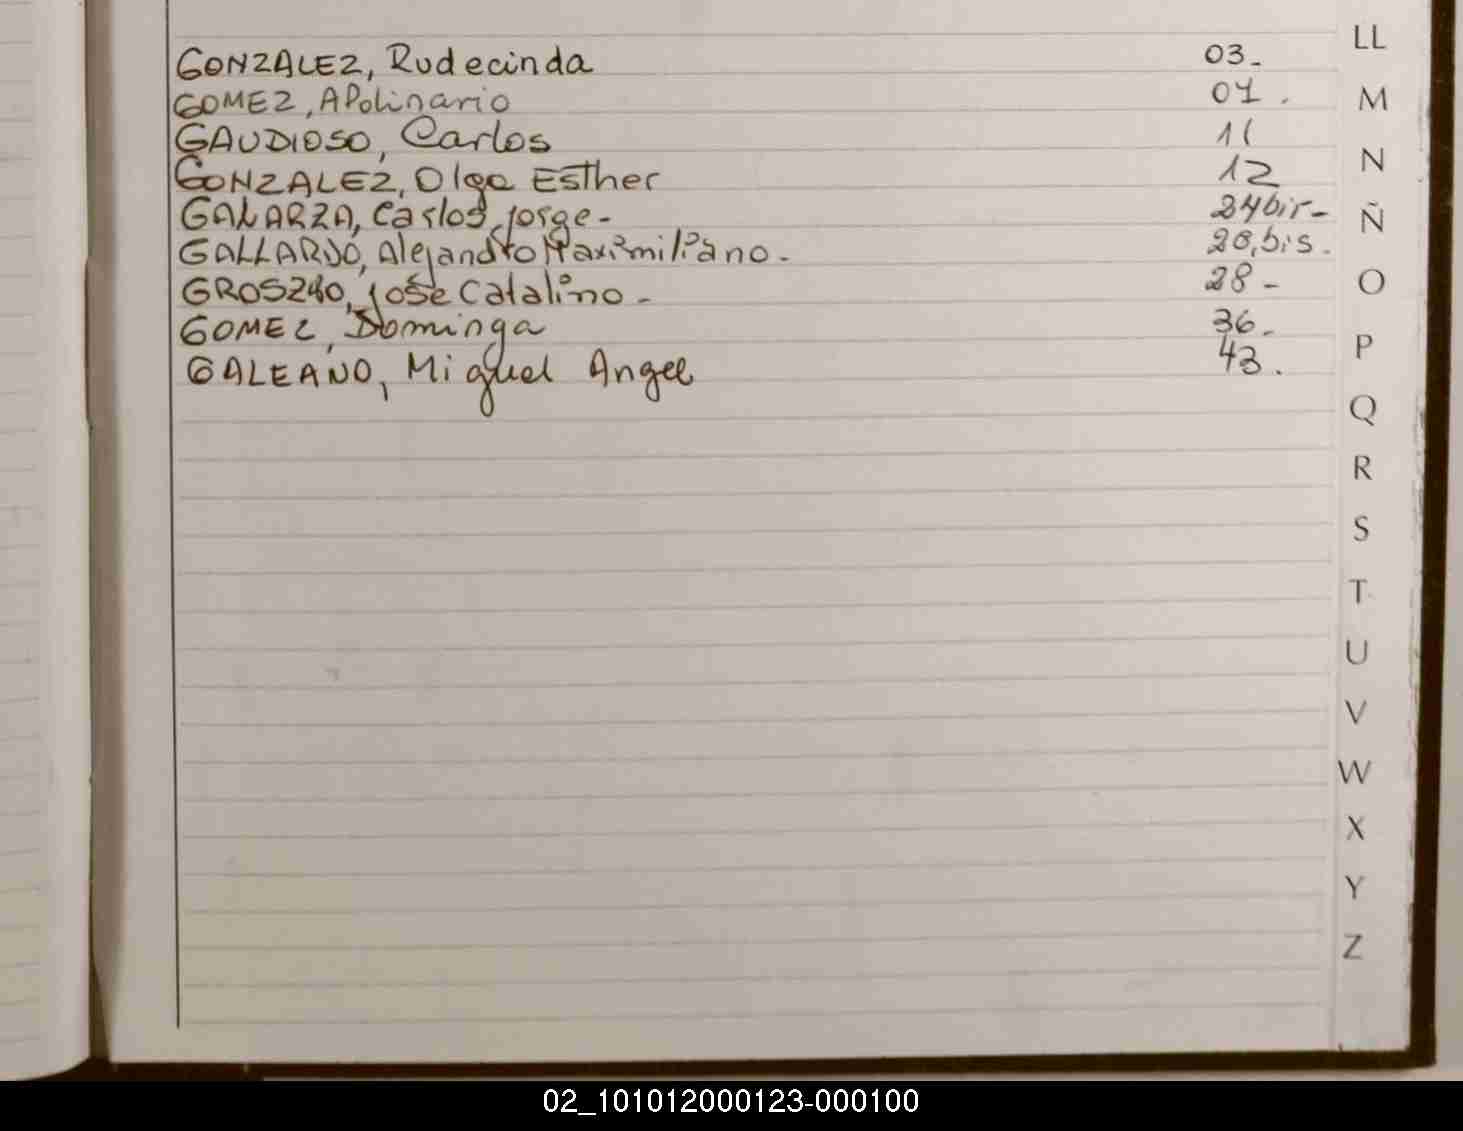 GONZALEZ, Rudecinda 03-
GOMEZ, APolinario 07.
GAUDIOSO, Carlos 11
GONZALEZ, Olga Esther 12
GALARZA, Carlos Jorge- 24bis-
GALLARDO, Alejandro Maximiliano. 26,bis.
José Catalino- 28-
GOMEZ, Dominga 36-
GALEANO, Miguel Angel 43.
LL
M
N
Ñ
O
P
Q
R
S
T
U
V
W
X
Y
Z
02_101012000123-000100